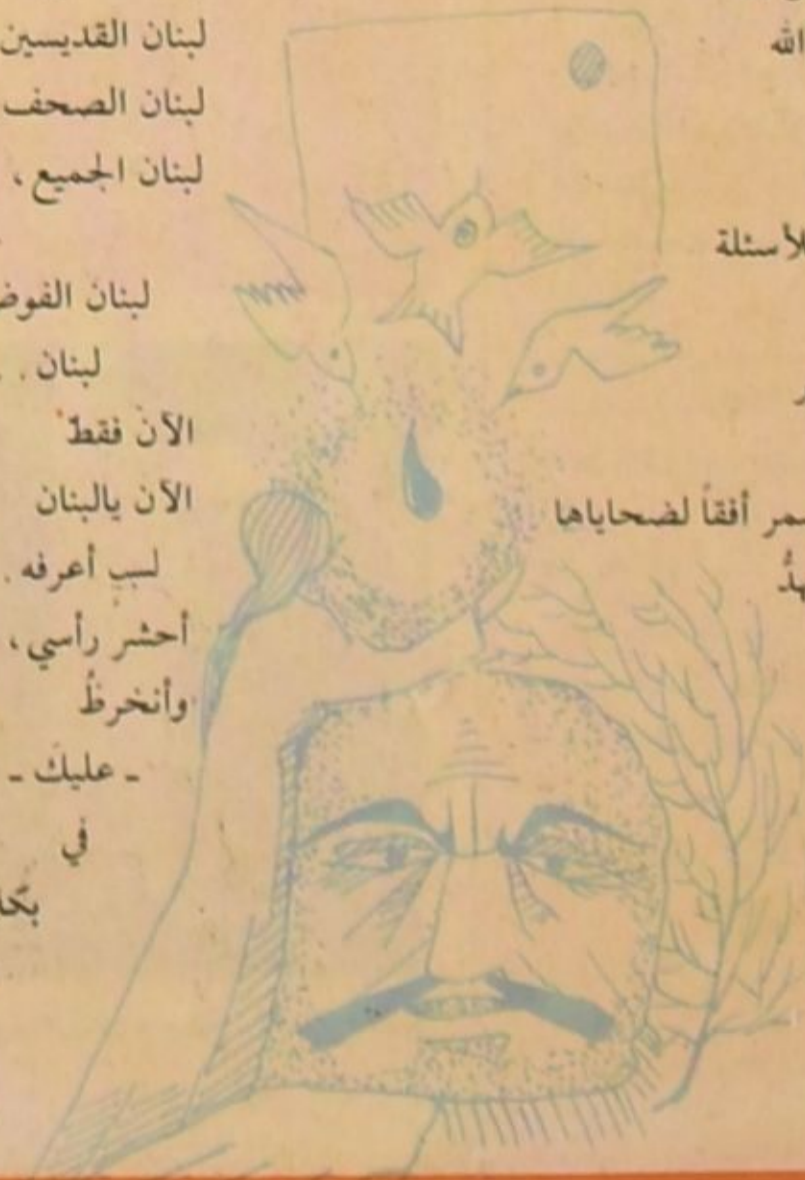 الله
لأسئلة
أفقاً لضحاياها
لبنان القديسين
لبنان الصحف
لبنان الجميع ،
لبنان
لبنان . .
الآن فقط
الآن يالبنان
لسبب أعرفه .
أحشر رأسي ،
وأنخرطُ
- عليك -
في